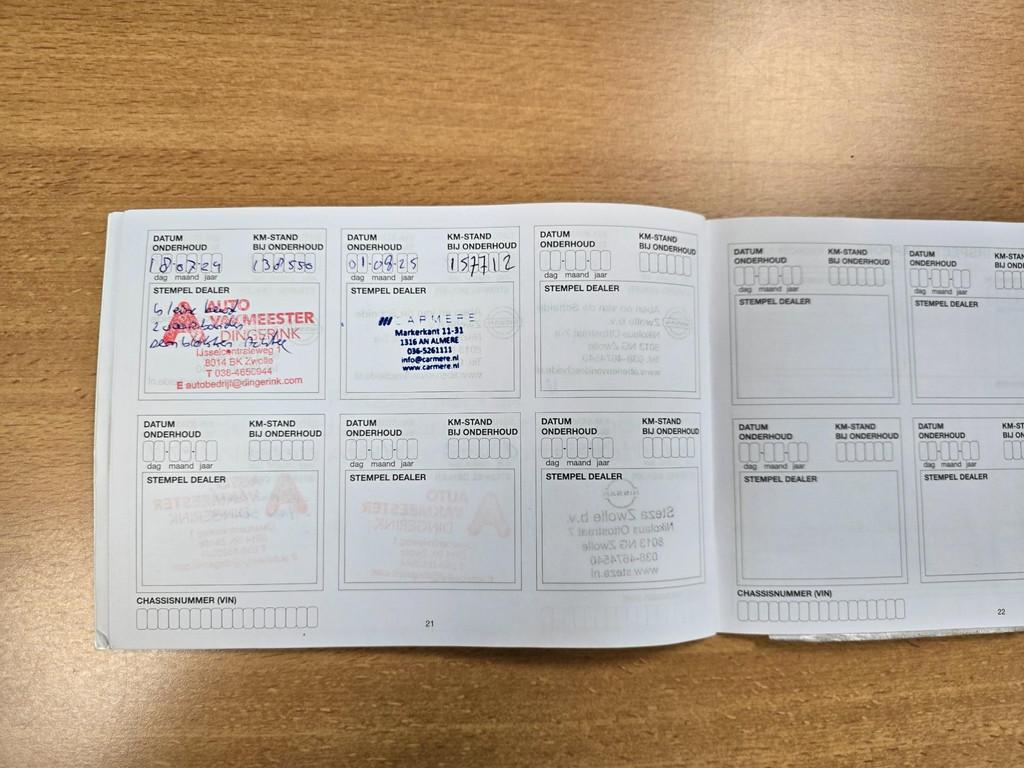 DATUM ONDERHOUD
KM-STAND BIJ ONDERHOUD
18-07-24
138550
dag maand jaar
STEMPEL DEALER
AUTO
VAKMEESTER
DINGERINK
IJsselcentraleweg 1
8014 BK Zwolle
T 038-4650944
E autobedrijf@dingerink.com
DATUM ONDERHOUD
KM-STAND BIJ ONDERHOUD
01-08-25
157712
dag maand jaar
STEMPEL DEALER
CARMERE
Markerkant 11-31
1316 AN ALMERE
036-5261111
info@carmere.nl
www.carmere.nl
DATUM ONDERHOUD
KM-STAND BIJ ONDERHOUD
dag maand jaar
STEMPEL DEALER
DATUM ONDERHOUD
KM-STAND BIJ ONDERHOUD
dag maand jaar
STEMPEL DEALER
DATUM ONDERHOUD
KM-STAND BIJ ONDERHOUD
dag maand jaar
STEMPEL DEALER
DATUM ONDERHOUD
KM-STAND BIJ ONDERHOUD
dag maand jaar
STEMPEL DEALER
CHASSISNUMMER (VIN)
21
DATUM ONDERHOUD
KM-STAND BIJ ONDERHOUD
dag maand jaar
STEMPEL DEALER
DATUM ONDERHOUD
KM-STA
BIJ OND
dag maand jaar
STEMPEL DEALER
DATUM ONDERHOUD
KM-STAND BIJ ONDERHOUD
dag maand jaar
STEMPEL DEALER
DATUM ONDERHOUD
KM-ST
BIJ ON
dag maand jaar
STEMPEL DEALER
CHASSISNUMMER (VIN)
22